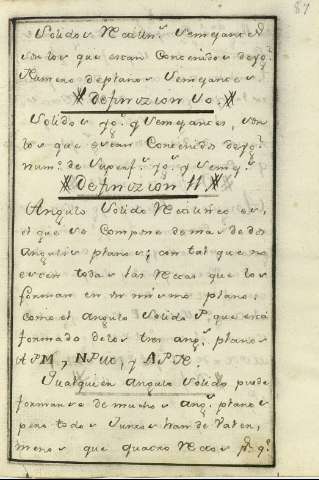 87
Solidos Rectilin.s Semejantes
son los que estan Contenidos de yg.l
Numero de planos Semejantes
Definizion 10.
Solidos yg.s y Semejantes, son
los que estan Contenidos de yg.l
num.o de Superf.s yg.s y Semej.s
Definizion 11.
Angulo Solido Rectilineo es,
el que se Compone de mas de dos
Angulos planos; con tal que no
esten todas las Rectas que los
forman en un mismo plano:
como el Angulo Solido P, que está
formado de los tres ang.s planos
A P M, N P M, y A P N.
Qualquier Angulo Solido puede
formarse de muchos ang.s planos
pero todos Juntos han de Valer,
menos que quatro Rectos p.r q.e